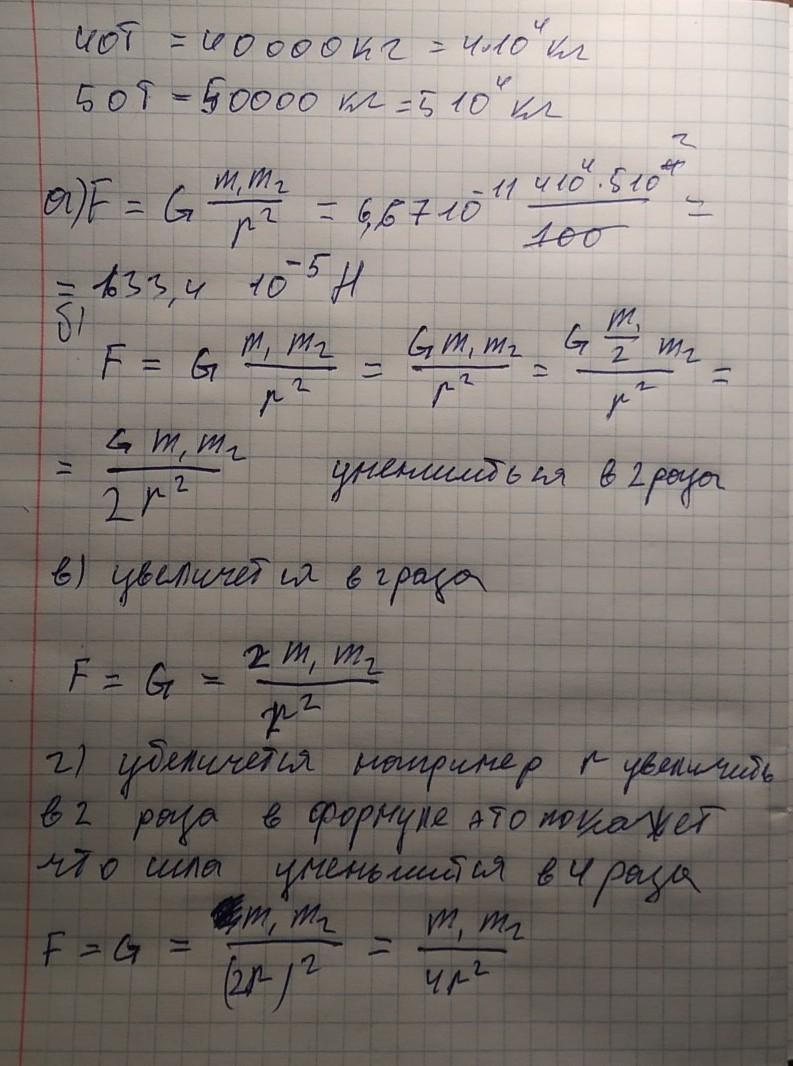 40т = 40000кг = 4·10⁴ кг
50т = 50000 кг = 5 10⁴ кг
а) F = G m₁m₂/r² = 6,67 10⁻¹¹ 4 10⁴ · 5 10⁴ ²/100 =
= 133,4 10⁻⁵ Н
б)
F = G m₁ m₂/r² = G m₁ m₂/r² = G m₁/2 m₂/r² =
= G m₁ m₂/2 r² уменьшиться в 2 раза
в) увеличется в 2 раза
F = G = 2 m₁ m₂/r²
г) увеличется например r увеличить
в 2 раза в формуле это покажет
что сила уменьшится в 4 раза
F = G = m₁ m₂/(2r)² = m₁ m₂/4r²